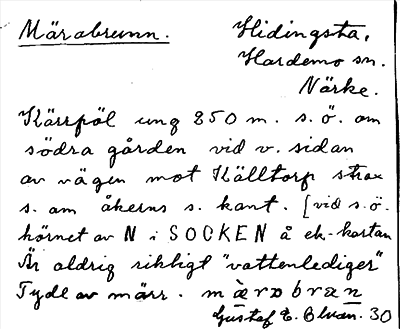 Märabrunn. Hidingsta,
Hardemo sn.
Närke.
Kärrpöl ung 250 m. s. ö. om
södra gården vid v. sidan
av vägen mot Källtorp strax
s. om åkerns s. kant. [vid s. ö.
hörnet av N i SOCKEN å ek-kartan
Är aldrig riktigt "vattenlediger"
Tydl av märr. mὰrɒbrꭤn
Gustaf E. 30